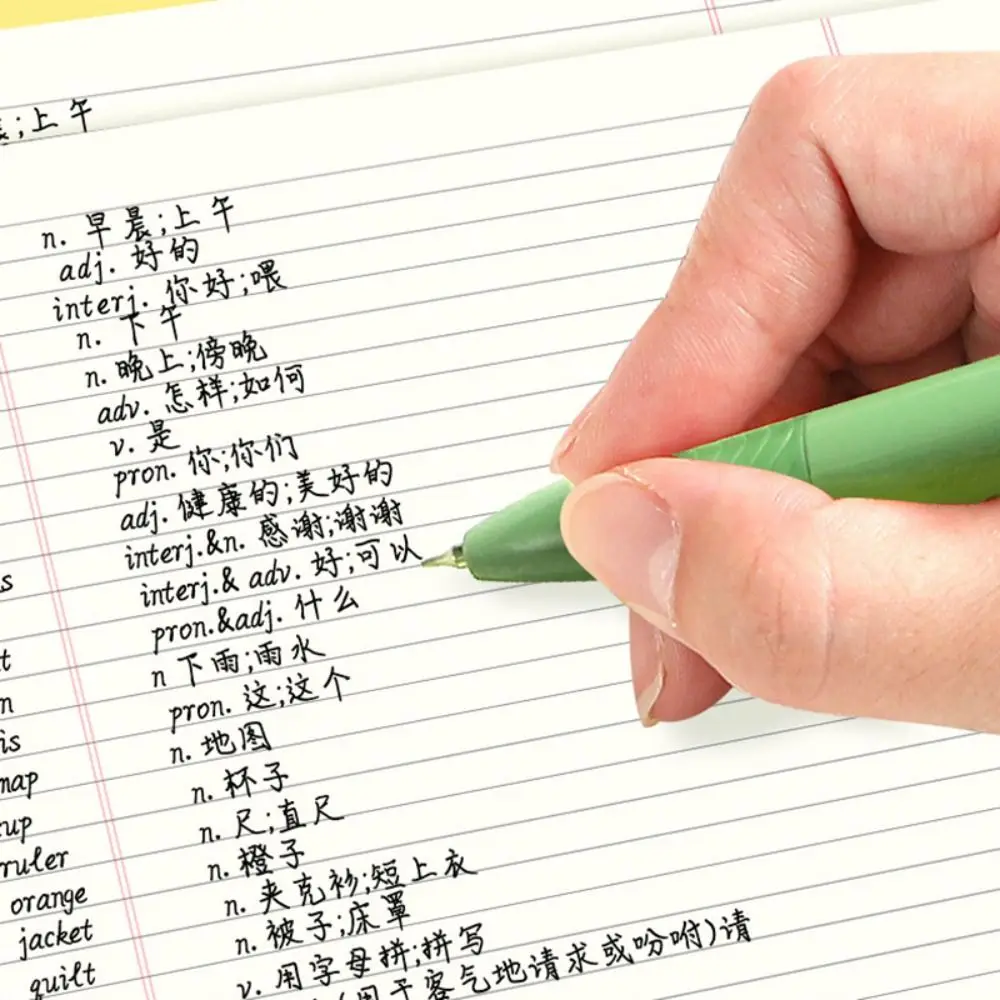 ;上午
n. 早晨;上午
adj. 好的
interj. 你好;喂
n. 下午
n. 晚上;傍晚
adv. 怎样;如何
v. 是
pron. 你;你们
adj. 健康的;美好的
interj.&n. 感谢;谢谢
interj.& adv. 好;可以
pron.&adj. 什么
n 下雨;雨水
pron. 这;这个
map n. 地图
cup n. 杯子
ruler n. 尺;直尺
orange n. 橙子
jacket n. 夹克衫;短上衣
quilt n. 被子;床罩
v. 用字母拼;拼写
(用于客气地请求或吩咐)请